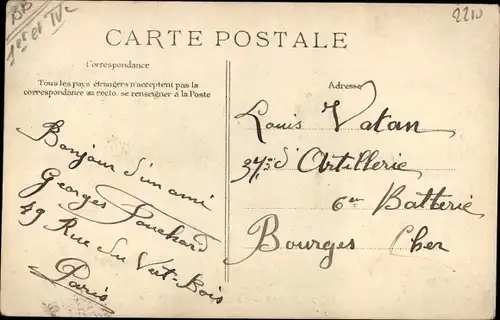 BB
1er et IVe
2210
CARTE POSTALE
Correspondance
Tous les pays étrangers n'acceptent pas la
correspondance au recto, se renseigner à la Poste
Bonjour d'un ami
Georges Fouchard
49 Rue du Vert-Bois
Paris
Adresse
Louis Vatan
37e d'Artillerie
6em Batterie
Bourges Cher